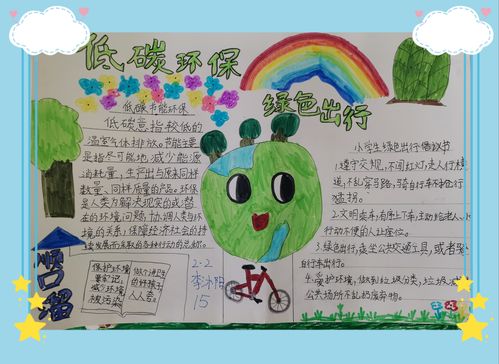 低碳环保
绿色出行
低碳节能环保
低碳意指较低的
温室气体排放。节能主要
是指尽可能地减少能源
消耗量，生产出与原来同样
数量、同样质量的产品。环保
是人类为解决现实的或潜
在的环境问题，协调人类与环
境的关系，保障经济社会的持
续发展而采取的各种行动的总称。
顺口溜
保护环境
要牢记，
减少环境
被污染。
做个讲卫生
的好孩子
人人夸。
2-2
15
小学生绿色出行倡议书
1.遵守交规，不闯红灯，走人行横
道，不乱穿马路，骑自行车不抢行
猛拐。
2.文明乘车，有序上下车，主动给老人、
行动不便的人让座位。
3.绿色出行，乘坐公共交通工具，或者
自行车出行。
4.爱护环境，做到垃圾分类，
公共场所不乱扔废弃物。